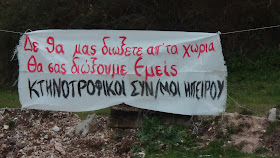 Δε θα μας διωξετε απ' τα χωρια
Θα σας διώξουμε Εμείς
ΚΤΗΝΟΤΡΟΦΙΚΟΙ ΣΥΝ/ΜΟΙ ΗΠΕΙΡΟΥ